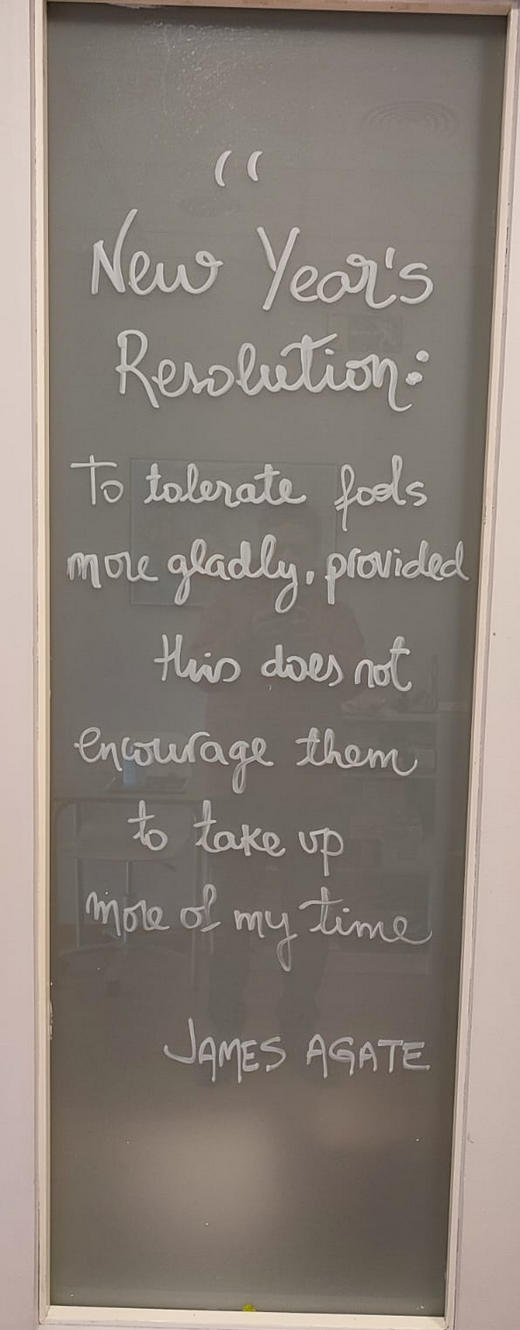 “
New Year's
Resolution:
To tolerate fools
more gladly, provided
this does not
encourage them
to take up
more of my time
JAMES AGATE